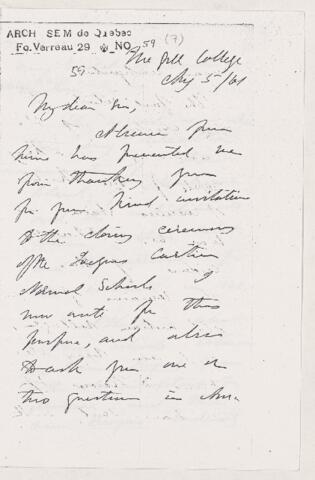 ARCH SEM de Quebec
Fo. Verreau 29 NO 59 (7)
59
McGill College
My dear Sir,
Absence from
home has prevented me
from thanking you
for your kind invitation
to the closing ceremony
of the Jacques Cartier
Normal School. I
now write for this
purpose, and also
to ask you one or
two questions in